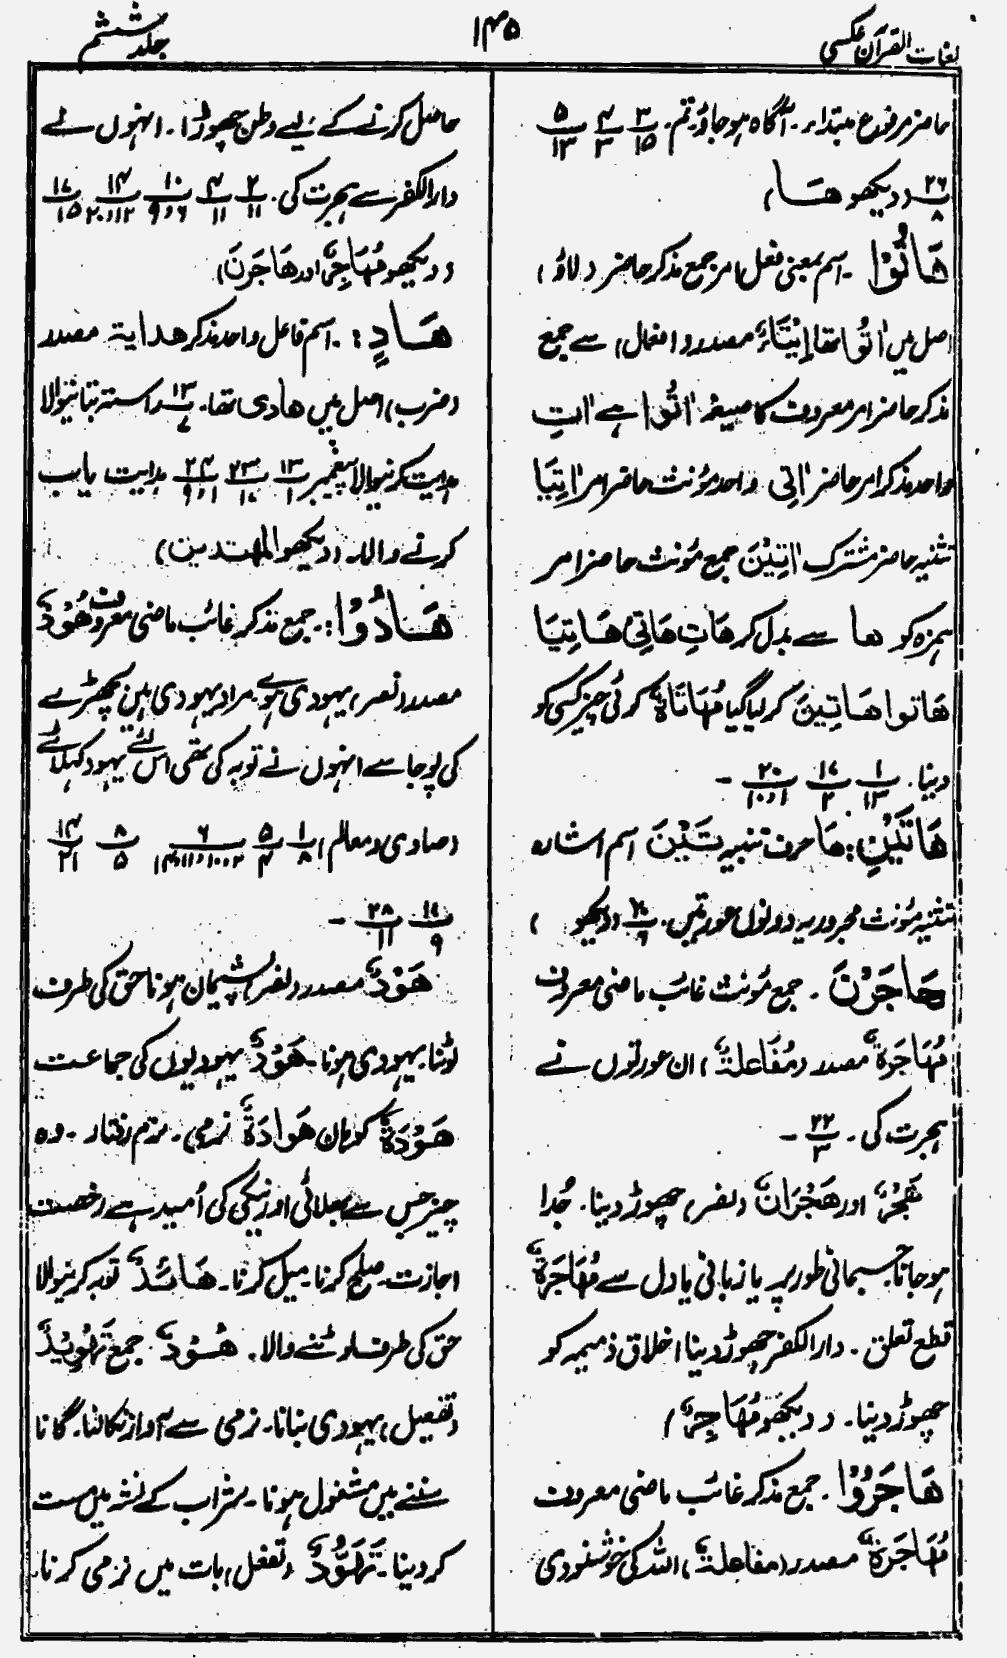 لغات القرآن عکسی
۱۴۵
جلد ششم
حاضر مرفوع مبتداء۔ آگاہ ہوجاؤ۔ تم۔ ۳/۱۵ ۴/۳ ۵/۱۳
۲۶/۸ (دیکھو ھَا)
ھَاتُوْا۔ اسم بمعنی فعل امر جمع مذکر حاضر (لاؤ)
اصل میں اٰتُوا تھا اِیْتَاءٌ مصدر (افعال) سے جمع
مذکر حاضر امر معروف کا صیغہ اٰتُوا ہے اٰتِ
واحد مذکر امر حاضر اٰتِی واحد مؤنث حاضر امر اٰتِیَا
تثنیہ حاضر مشترک اٰتِیْنَ جمع مؤنث حاضر امر
ہمزہ کو ھا سے بدل کر ھَاتِ ھَاتِیْ ھَاتِیَا
ھَاتوا ھَاتِیْنَ کر لیا گیا مُھَاتَاۃٌ کوئی چیز کسی کو
دینا۔ ۱/۱۳ ۱۷/۲ ۲۰/۱۰،۱ ۔
ھَاتَیْنِ: ھَا حرف تنبیہ تَیْنِ اسم اشارہ
تثنیہ مؤنث مجرور یہ دونوں عورتیں۔ ۲۰/۶ (دیکھو )
ھَاجَرْنَ۔ جمع مؤنث غائب ماضی معروف
مُھَاجَرَۃٌ مصدر (مُفَاعَلۃ) ان عورتوں نے
ہجرت کی۔ ۲۲/۳ ۔
ھَجْرٌ اور ھَجْرَانٌ (نصر) چھوڑ دینا۔ جُدا
ہوجانا۔ جسمانی طور پر یا زبانی یا دل سے مُھَاجَرَۃٌ
قطع تعلق۔ دارالکفر چھوڑ دینا اخلاق ذمیمہ کو
چھوڑ دینا۔ (دیکھو مُھَاجِرٌ)
ھَاجَرُوْا۔ جمع مذکر غائب ماضی معروف
مُھَاجَرَۃٌ مصدر (مفاعلۃ) اللہ کی خوشنودی
حاصل کرنے کے لیے وطن چھوڑا۔ انہوں نے
دارالکفر سے ہجرت کی۔ ۲/۱۱ ۴/۱۱ ۱۰/۹،۶ ۱۴/۲۰،۱۲ ۱۷/۱۵
(دیکھو مُھَاجِرٌ اور ھَاجَرْنَ)
ھَادٍ:۔ اسم فاعل واحد مذکر ھدایۃ مصدر
(ضرب) اصل میں ھادی تھا۔ ۱۳/۷ راستہ بتانیوالا
ہدایت کرنیوالا پیغمبر ۱۳/۱ ۲۳/۱۷ ۲۴/۹،۱ ہدایت یاب
کرنے والا۔ (دیکھو المھتدین)
ھَادُوْا:۔ جمع مذکر غائب ماضی معروف ھُوْدٌ
مصدر (نصر) یہودی ہوئے۔ مراد یہودی ہیں بچھڑے
کی پوجا سے انہوں نے توبہ کی تھی اس لئے یہود کہلائے
(صاوی ومعالم) ۱/۸ ۵/۴ ۶/۱۴،۱۱،۱۰،۲ ۸/۵ ۱۴/۲۱
۱۷/۹ ۲۸/۱۱ ۔
ھَوْدٌ مصدر (نصر) پشیمان ہونا حق کی طرف
لوٹنا۔ یہودی ہونا۔ ھَوْدٌ یہودیوں کی جماعت
ھَوْدَۃٌ کوہان ھَوادَۃٌ نرمی۔ نرم رفتار۔ وہ
چیز جس سے بھلائی اور نیکی کی اُمید ہے رخصت
اجازت۔ صلح کرنا۔ میل کرنا۔ ھَائدٌ توبہ کرنیوالا
حق کی طرف لوٹنے والا۔ ھُوْدٌ جمع تَہْوِیْدٌ
(تفعیل) یہودی بنانا۔ نرمی سے آواز نکالنا۔ گانا
سننے میں مشغول ہونا۔ شراب کے نشہ میں مست
کر دینا۔ تَہَوُّدٌ (تفعل) بات میں نرمی کرنا۔